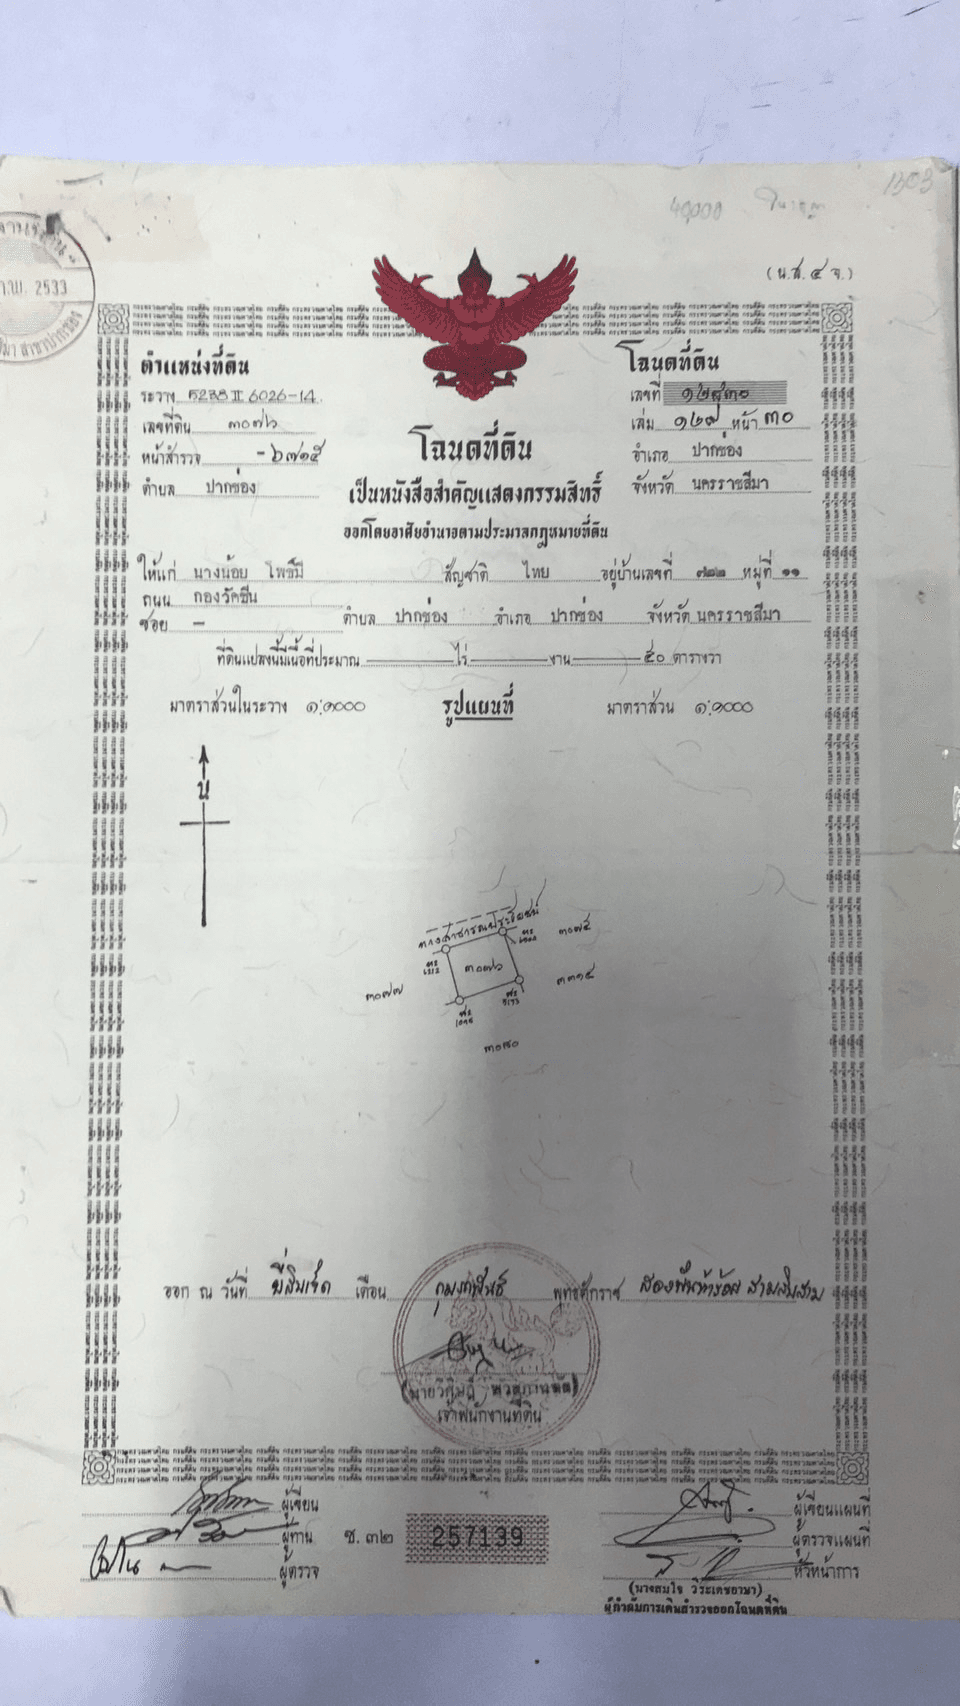 1303
40,000
(น.ส.๔ จ.)
ก.พ. 2533
สาขาปากช่อง
ตำแหน่งที่ดิน
ระวาง 5238 II 6026-14
เลขที่ดิน ๓๐๗๖
หน้าสำรวจ -๖๗๑๕
ตำบล ปากช่อง
โฉนดที่ดิน
เลขที่ ๑๒๙๓๐
เล่ม ๑๒๙ หน้า ๓๐
อำเภอ ปากช่อง
จังหวัด นครราชสีมา
โฉนดที่ดิน
เป็นหนังสือสำคัญแสดงกรรมสิทธิ์
ออกโดยอาศัยอำนาจตามประมวลกฎหมายที่ดิน
ให้แก่ นางน้อย โพธิ์มี สัญชาติ ไทย อยู่บ้านเลขที่ ๗๒๒ หมู่ที่ ๑๑
ถนน กองวัคซีน
ซอย – ตำบล ปากช่อง อำเภอ ปากช่อง จังหวัด นครราชสีมา
ที่ดินแปลงนี้มีเนื้อที่ประมาณ ไร่ งาน ๕๐ ตารางวา
มาตราส่วนในระวาง ๑:๑๐๐๐ รูปแผนที่ มาตราส่วน ๑:๑๐๐๐
น
ทางสาธารณประโยชน์
๓๐๗๕
๓๐๗๖
๓๐๗๗
๓๓๑๕
๓๐๘๐
ออก ณ วันที่ ยี่สิบเจ็ด เดือน กุมภาพันธ์ พุทธศักราช สองพันห้าร้อยสามสิบสาม
เจ้าพนักงานที่ดิน
ผู้เขียน
ผู้ทาน
ผู้ตรวจ
ช. ๓๒
257139
ผู้เขียนแผนที่
ผู้ตรวจแผนที่
หัวหน้าการ
(นายสมใจ วีระเดชอาษา)
ผู้กำกับการเดินสำรวจออกโฉนดที่ดิน